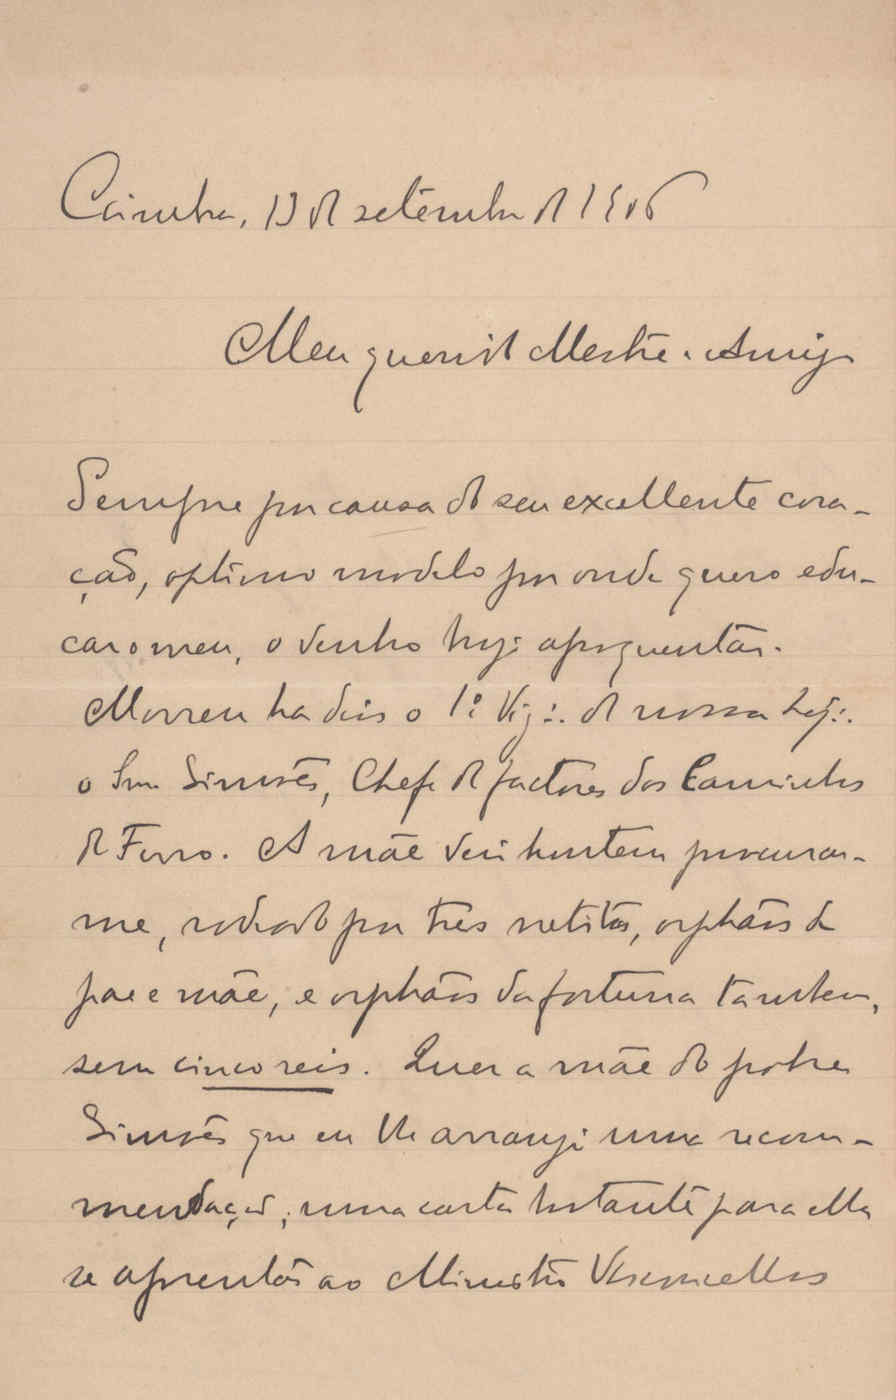 Coimbra, 13 de setembro de 1906
Meu querido Mestre e Amigo
Sempre por causa do seu excellente cora-
ção, optimo modelo por onde quero edu-
car o meu, o venho hoje apoquentar.
Morreu ha dias o 1º Vig∴ de nossa Loj∴
o Snr Simões, Chefe de factores dos Caminhos
de Ferro. A mãe veiu hontem procurar-
me, rodeado por tres netitos, orphãos de
pae e mãe, e orphãos da fortuna tambem,
sem cinco reis. Quer a mãe do pobre
Simões que eu lhe arranje uma recom-
mendação, uma carta bastante para ella
se apresentar ao Ministro Vasconcellos